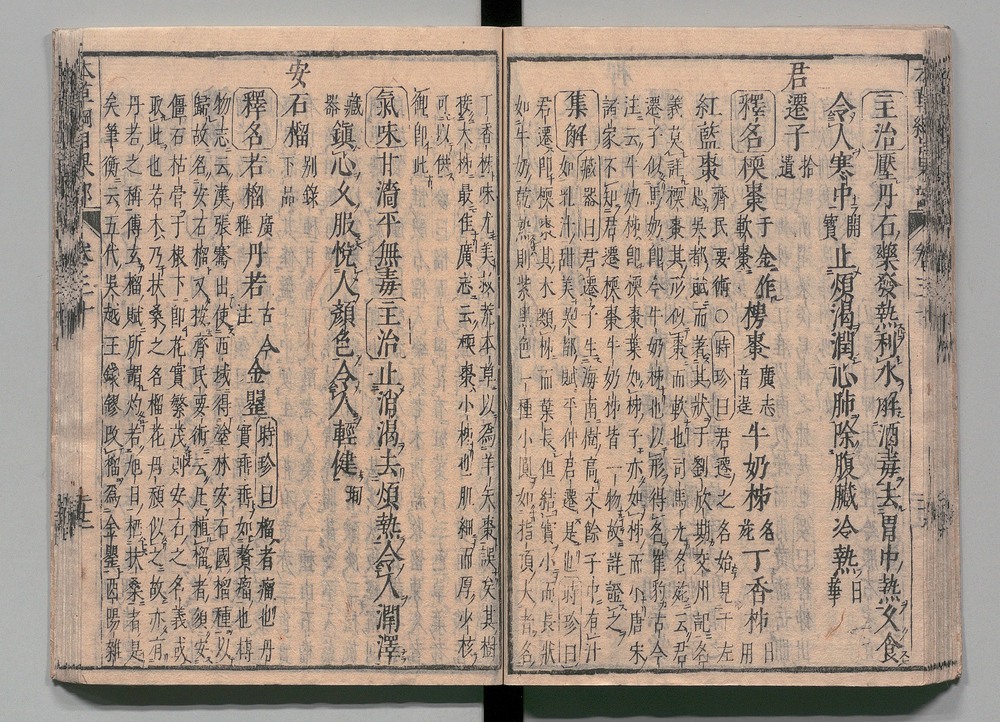 主治壓丹石藥發熱利水解酒毒去胃中熱久食
令人寒中開寶止煩渴潤心肺除腹臟冷熱日華
君遷子拾遺
釋名㮕棗千金作軟棗梬棗廣志音逞牛奶柹名苑丁香柹日用
紅藍棗齊民要術○時珍曰君遷之名始見于左
思吳都賦而著其狀于劉欣期交州記名
義莫詳㮕棗其形似棗而軟也司馬光名苑云君
遷子似馬奶即今牛奶柹也以形得名崔豹古今
注云牛奶柹即㮕棗葉如柹子亦如柹而小唐宋
諸家不知君遷㮕棗牛奶柹皆一物故詳證之
集解藏器曰君遷子生海南樹高丈餘子中有汁
如乳汁甜美吳都賦平仲君遷是也時珍曰
君遷即㮕棗其木類柹而葉長但結實小而長狀
如牛奶乾熟則紫黑色一種小圓如指頂大者名
丁香柹味尤美救荒本草以為羊矢棗誤矣其樹
接大柹最佳廣志云㮕棗小柹也肌細而厚少核
可以供
御即此
氣味甘濇平無毒主治止消渴去煩熱令人潤澤
藏器鎮心久服悅人顏色令人輕健珣
安石榴別錄下品
釋名若榴廣雅丹若古今注金罌時珍曰榴者瘤也丹
實乖乖如贅瘤也博
物志云漢張騫出使西域得塗林安石國榴種以
歸故名安石榴又按齊民要術云凡植榴者須安
僵石枯骨于根下即花實繁茂則安石之名義或
取此也若木乃扶桑之名榴花丹頳似之故亦有
丹若之稱傅玄榴賦所謂灼若旭日栖扶桑者是
矣筆衡云五代吳越王錢鏐改榴為金罌酉陽雜